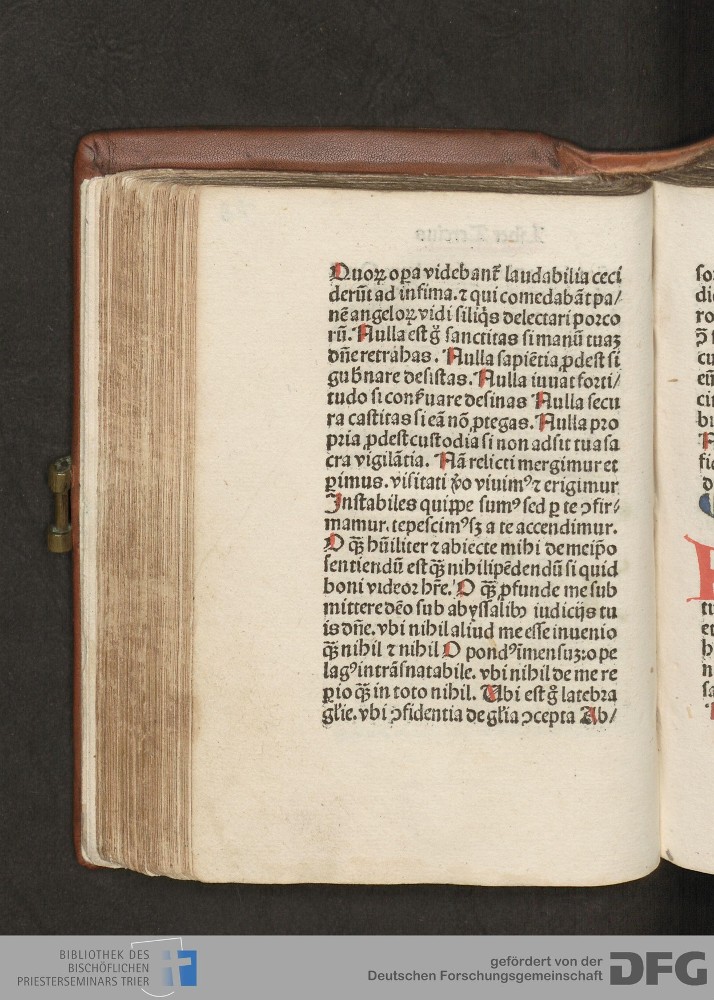 Quoꝝ oꝑa videbant᷑ laudabilia ceci
derūt ad infima. ⁊ qui comedabāt pa/
nē angeloꝝ vidi siliq̄s delectari porco
rū. Nulla est g̊ sanctitas si manū tuaꝫ
dn̄e retrahas. Nulla sapiētia ꝓdest si
gub̄nare desistas. Nulla iuuat forti/
tudo si conẜuare desinas Nulla secu
ra castitas si eā nō ꝓtegas. Nulla pro
pria ꝓdest custodia si non adsit tua sa
cra vigilātia. Nā relicti mergimur et
ꝑimus. visitati v̊o viuimꝰ ⁊ erigimur
Instabiles quippe sumꝰ sed ꝑ te ꝯfir/
mamur. tepescimꝰ sꝫ a te accendimur.
O qꝫ̄ hūiliter ⁊ abiecte mihi de meip̄o
sentiendū est qꝫ̄ nihilipēdendū si quid
boni videoꝛ hr̄e. O qꝫ̄ ꝓfunde me sub
mittere dēo sub abyssalibꝰ iudicijs tu
is dn̄e. vbi nihil aliud me esse inuenio
qꝫ̄ nihil ⁊ nihil O pondꝰ īmensuꝫ: o pe
lagꝰ intrāsnatabile. vbi nihil de me re
ꝑio qꝫ̄ in toto nihil. Vbi est g̊ latebra
gl̄ie. vbi ꝯfidentia de gl̄ia ꝯcepta Ab/
Liber Tercius
BIBLIOTHEK DES
BISCHÖFLICHEN
PRIESTERSEMINARS TRIER
gefördert von der
Deutschen Forschungsgemeinschaft
DFG